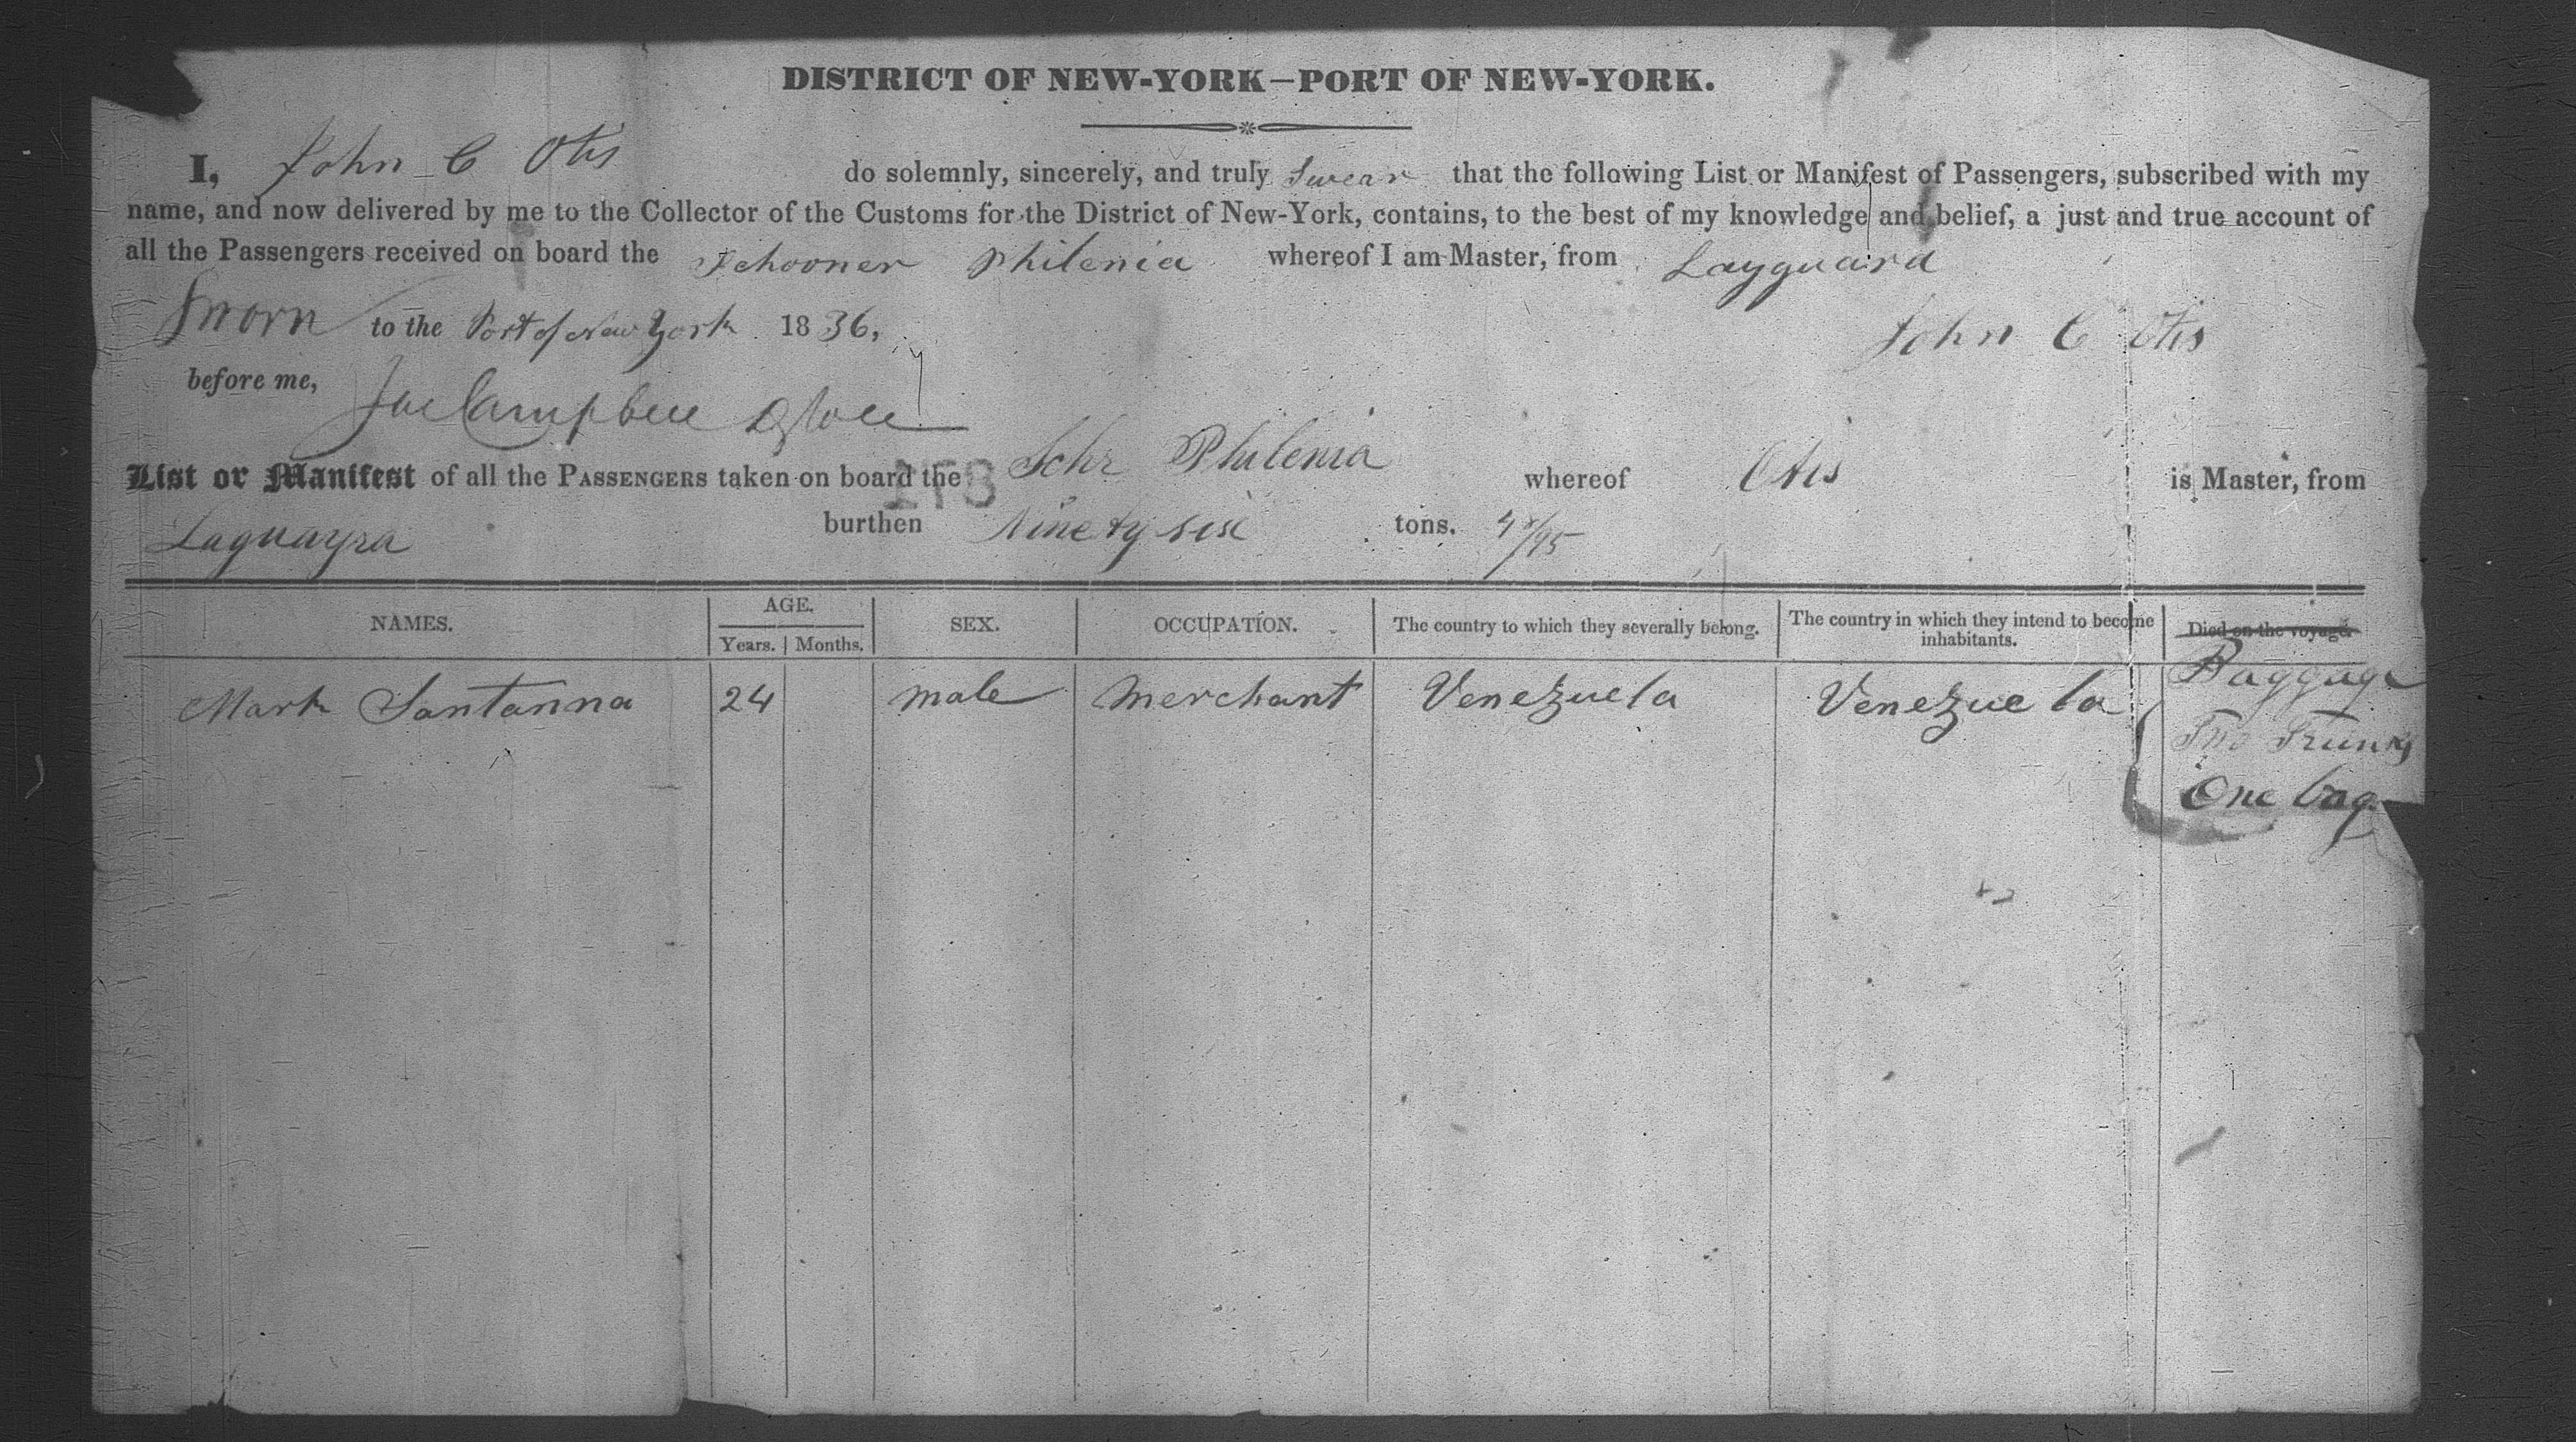 DISTRICT OF NEW-YORK—PORT OF NEW-YORK.
I, John C Otis do solemnly, sincerely, and truly Swear that the following List or Manifest of Passengers, subscribed with my
name, and now delivered by me to the Collector of the Customs for the District of New-York, contains, to the best of my knowledge and belief, a just and true account of
all the Passengers received on board the Schooner Philenia whereof I am Master, from Layguard
Sworn to the Port of New York 1836,
John C Otis
before me,
Campbell
List or Manifest of all the PASSENGERS taken on board the Schr Philenia whereof Otis is Master, from
Laguayra burthen Ninety six tons. /95
NAMES. AGE. Years. Months. SEX. OCCUPATION. The country to which they severally belong. The country in which they intend to become inhabitants. Died on the voyage.
Mark Santanna 24 male Merchant Venezuela Venezuela Baggage
Two Trunks
One bag